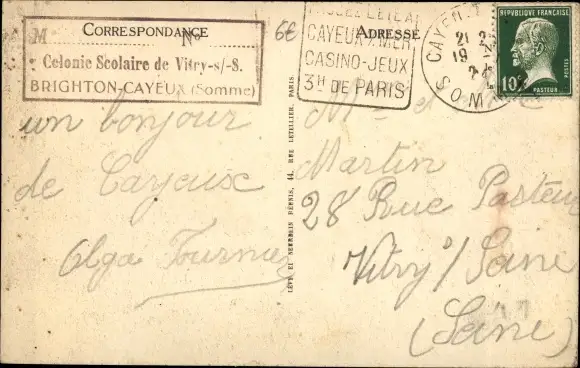 CORRESPONDANCE
M No
Colonie Scolaire de Vitry-s/-S.
BRIGHTON-CAYEUX (Somme)
un bonjour
de Cayeux
Olga Fournier
LÉVY ET NEURDEIN RÉUNIS, 44, RUE LETELLIER, PARIS
6€
ADRESSE
CAYEUX s/ MER
CASINO-JEUX
3H DE PARIS
CAYEUX
21
19
SOMME
RÉPUBLIQUE FRANÇAISE
POSTES
10c
PASTEUR
Mr et
Martin
28 Rue Pasteur
Vitry s/ Seine
(Seine)